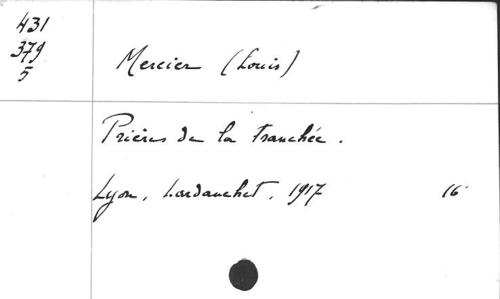 431
379
5
Mercier (Louis)
Prières de la tranchée.
Lyon, Lardanchet, 1917 16°